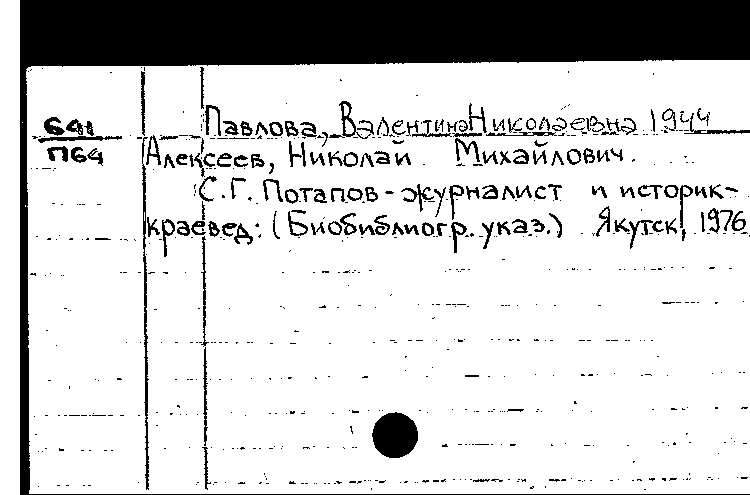 641 Павлова, Валентина Николаевна 1944
П64 Алексеев, Николай Михайлович.
С.Г. Потапов - журналист и историк-
краевед: (Биобиблиогр. указ.) Якутск, 1976